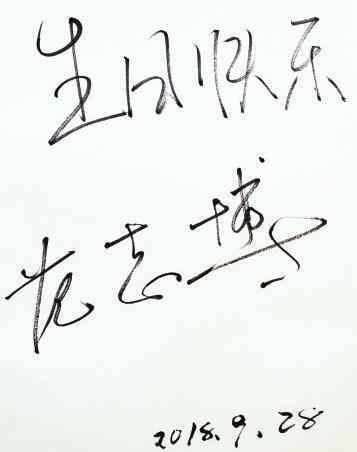 生日快乐
范志博
2018.9.28